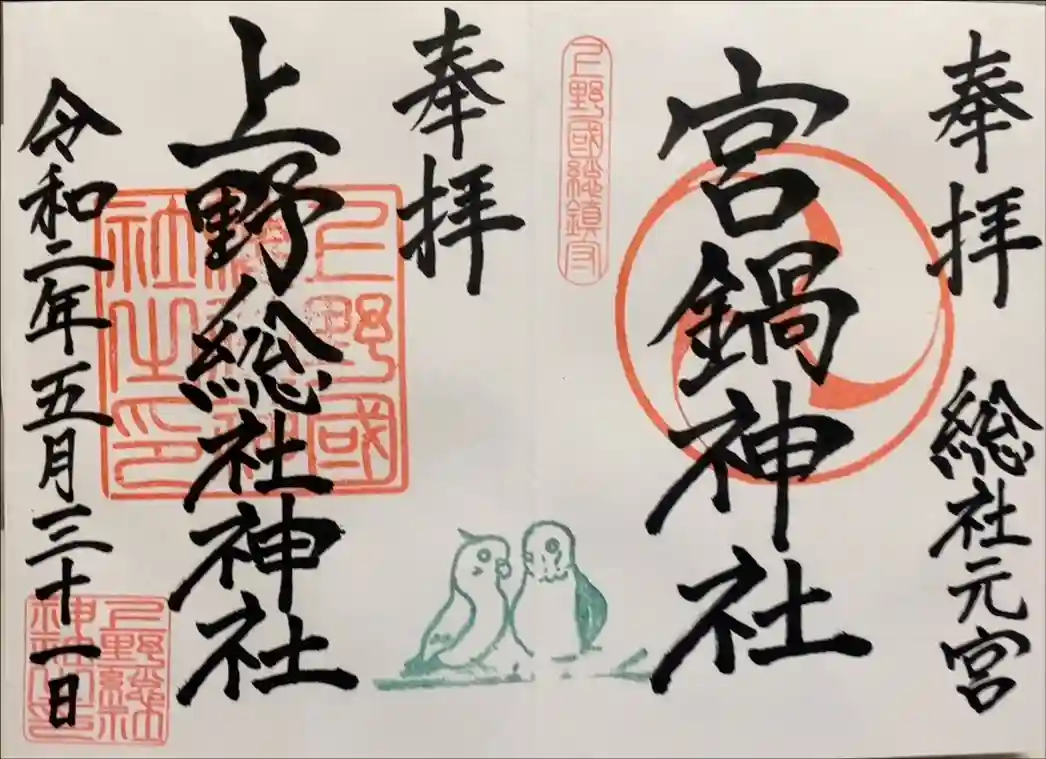 奉拝
総社元宮
宮鍋神社
上野國総鎮守
奉拝
上野総社神社
上野國
社之印
令和二年五月三十一日
上野総社
神社之印